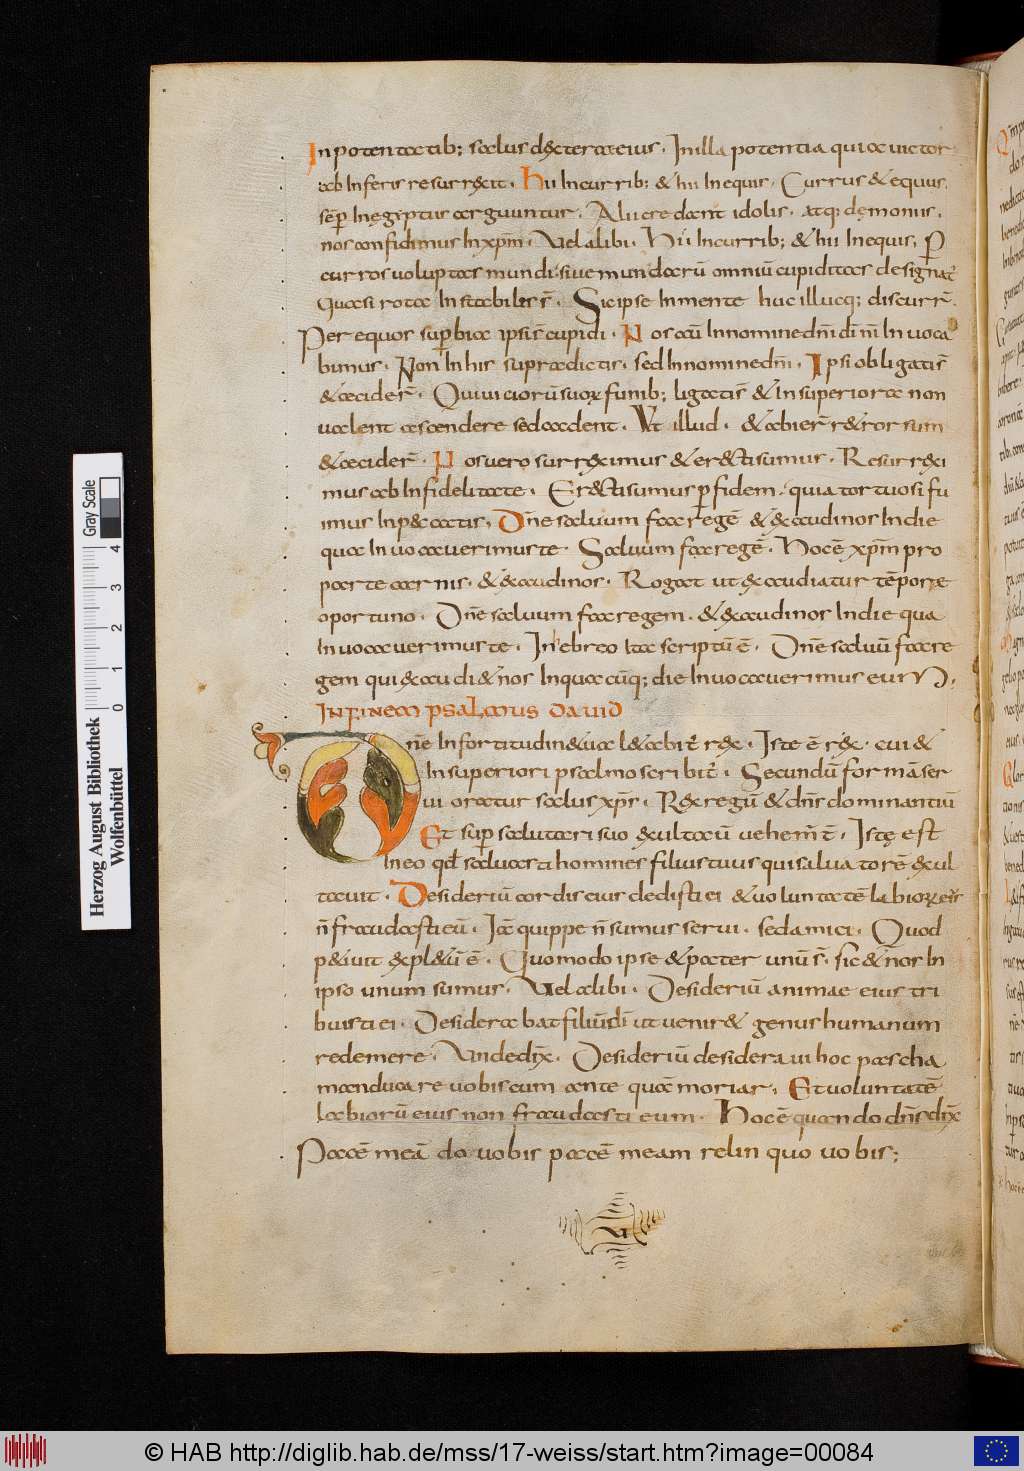 In potentatib; salus dexterae eius. In illa potentia qui a victor
ab Inferis resurrexit. hii In currib; & hii In equis. Currus & equus
sēp In egyptus arguuntur. Alii credant idolis. atq; demoniis.
nos confidimus In xp̄m. Vel alibi. Hii In currib; & hii In equis. P
currus voluptas mundi. siue mundarū omniū cupiditas designat̄
Quasi rota Instabiles s̄t. Sic ipse In mente huc illucq; discurr̄.
Per equos superbiae ipsis cupidi. Nos aū In nomine dn̄i dī nr̄i In uoca
bimus. Non In his supradictis. sed In nomine dn̄i. Ipsi obligati s̄
& cecider̄. Qui uiciorū suoꝝ funib; ligati s̄ & In superiora non
ualent ascendere sed cadent. Vt illud. & abier̄ r&rorsum
& cecider̄. Nos uero surreximus & er&ti sumus. Resurrexi
mus ab Infidelitate. Er&ti sumus p fidem. quia tortuosi fu
imus In peccatis. Dn̄e saluum fac regē & exaudi nos In die
qua In uocauerimus te. Saluum fac regē. Hoc ē xp̄m pro
parte carnis. & exaudi nos. Rogat ut exaudiatur tēpore
oportuno. Dn̄e saluum fac regem. & exaudi nos In die qua
In uocauerimus te. In ebreo Ita scriptū ē. Dn̄e saluū fac re
gem qui exaudi& nos In quacūq; die In uocauerimus eum.
IN FINEM PSALMUS DAVID
Dn̄e In fortitudine tua l&abit̄ rex. Iste ē rex. cui &
In superiori psalmo scribit̄. Secundū formā ser
ui oratur salus xp̄s. Rex regū & dn̄s dominantiū
Et sup salutari suo exultauit uehem̄t̄. Iste est
In eo qd̄ saluasti homines filius tuus qui saluatorē exul
tauit. Desideriū cordis eius dedisti ei & uoluntatē labioꝝ ei'
n̄ fraudasti eū. Iā quippe n̄ sumus serui. sed amici. Quod
p&iuit expl&ū ē. Quomodo ipse & pater unū s̄. sic & nos In
ipso unum sumus. Vel alibi. Desideriū animae eius tri
buisti ei. Desiderabat filius dī ut uenir& genus humanum
redemere. Vnde dix̄. Desideriū desideraui hoc pascha
manducare uobiscum ante quā moriar. Et uoluntatē
labiorū eius non fraudasti eum. Hoc ē quando dn̄s dix̄
Pacē meā do uobis pacē meam relinquo uobis;
VI
Gray Scale
0 1 2 3 4
Herzog August Bibliothek
Wolfenbüttel
© HAB http://diglib.hab.de/mss/17-weiss/start.htm?image=00084